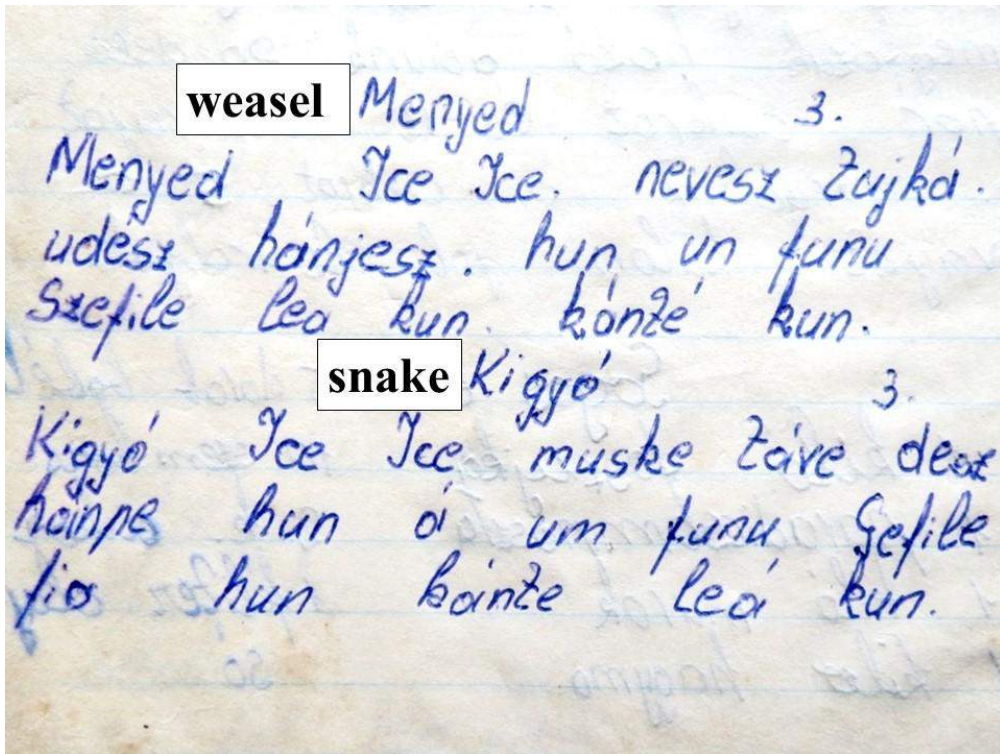 weasel Menyed 3.
Menyed Ice Ice. nevesz Zujká.
udész hánjesz. hun un funu
Szefile leá kun. kánzé kun.
snake Kigyó 3.
Kigyó Ice Ice muske Záve desz
hánpe hun á um funu Sefile
fio hun kánze leá kun.